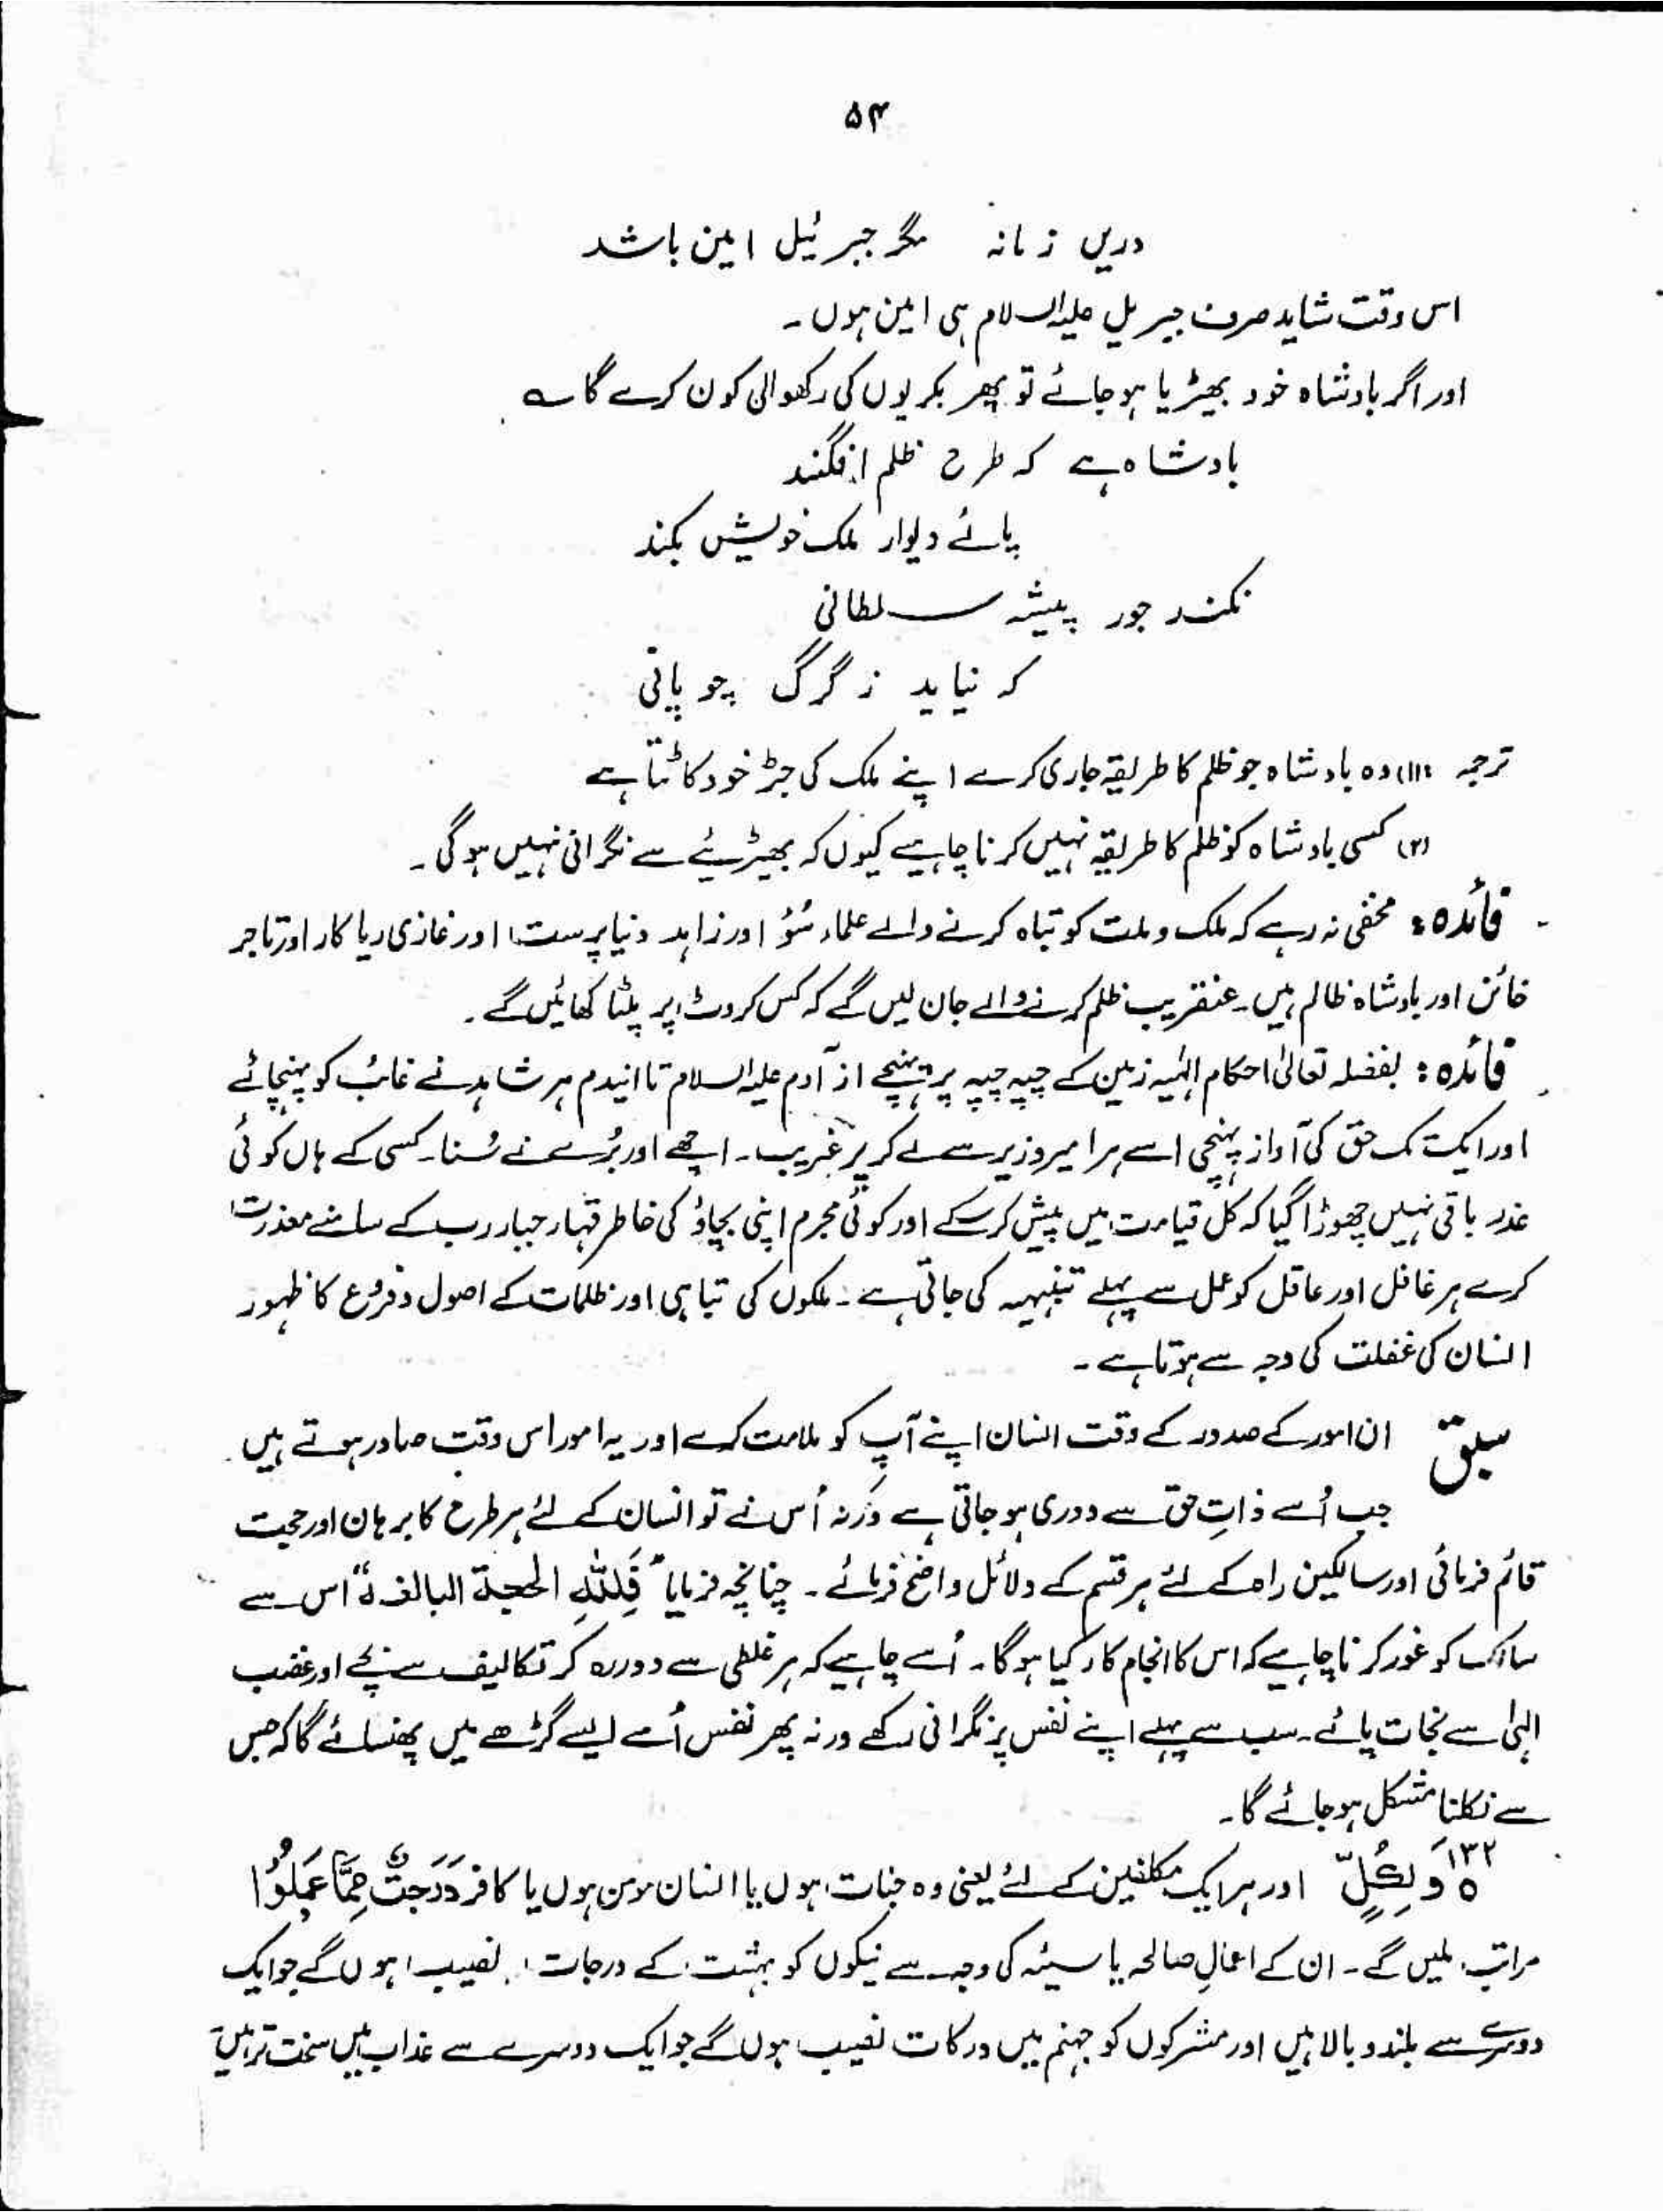 ۵۴
دریں زمانہ مگر جبرئیل امین باشد
اس وقت شاید صرف جبریل علیہ السلام ہی امین ہوں۔
اور اگر بادشاہ خود بھیڑیا ہو جائے تو پھر بکریوں کی رکھوالی کون کرے گا ؎
بادشاہے کہ طرح ظلم افگند
پائے دیوار ملک خویش بکند
نکند جور پیشہ سلطانی
کہ نیاید ز گرگ چوپانی
ترجمہ (۱) وہ بادشاہ جو ظلم کا طریقہ جاری کرے اپنے ملک کی جڑ خود کاٹتا ہے
(۲) کسی بادشاہ کو ظلم کا طریقہ نہیں کرنا چاہیے کیوں کہ بھیڑیئے سے نگرانی نہیں ہوگی۔
فائدہ: مخفی نہ رہے کہ ملک و ملت کو تباہ کرنے والے علماء سُؤ اور زاہد دنیا پرست اور غازی ریا کار اور تاجر
خائن اور بادشاہ ظالم ہیں۔ عنقریب ظلم کرنے والے جان لیں گے کہ کس کروٹ پر پلٹا کھائیں گے۔
فائدہ: بفضلہ تعالیٰ احکام الٰہیہ زمین کے چپہ چپہ پر پہنچے از آدم علیہ السلام تا ایندم ہر شاہد نے غائب کو پہنچائے
اور ایک تک حق کی آواز پہنچی اسے ہر امیر وزیر سے لے کر ہر غریب۔ اچھے اور بُرے نے سُنا۔ کسی کے ہاں کوئی
عذر باقی نہیں چھوڑا گیا کہ کل قیامت میں پیش کر سکے اور کوئی مجرم اپنی بچاؤ کی خاطر قہار جبار رب کے سامنے معذرت
کرے ہر غافل اور عاقل کو عمل سے پہلے تنبیہہ کی جاتی ہے۔ ملکوں کی تباہی اور ظلمات کے اصول و فروع کا ظہور
انسان کی غفلت کی وجہ سے ہوتا ہے۔
سبق ان امور کے صدور کے وقت انسان اپنے آپ کو ملامت کرے اور یہ امور اس وقت صادر ہوتے ہیں
جب اُسے ذاتِ حق سے دوری ہو جاتی ہے ورنہ اُس نے تو انسان کے لئے ہر طرح کا برہان اور حجیت
قائم فرمائی اور سالکین راہ کے لئے ہر قسم کے دلائل واضح فرمائے۔ چنانچہ فرمایا "فَلِلّٰہِ الحجۃ البالغۃ" اس سے
سالک کو غور کرنا چاہیے کہ اس کا انجام کار کیا ہوگا۔ اُسے چاہیے کہ ہر غلطی سے دور رہ کر تکالیف سے بچے اور غضب
الہٰی سے نجات پائے۔ سب سے پہلے اپنے نفس پر نگرانی رکھے ورنہ پھر نفس اُسے ایسے گڑھے میں پھنسائے گا کہ جس
سے نکلنا مشکل ہو جائے گا۔
۱۳۲ وَلِکُلٍّ اور ہر ایک مکلفین کے لئے یعنی وہ جنات ہوں یا انسان مومن ہوں یا کافر دَرَجٰتٌ مِّمَّا عَمِلُوْا
مراتب ملیں گے۔ ان کے اعمالِ صالحہ یا سیئہ کی وجہ سے نیکوں کو بہشت کے درجات نصیب ہوں گے جو ایک
دوسرے سے بلند و بالا ہیں اور مشرکوں کو جہنم میں درکات نصیب ہوں گے جو ایک دوسرے سے عذاب میں سخت تر ہیں